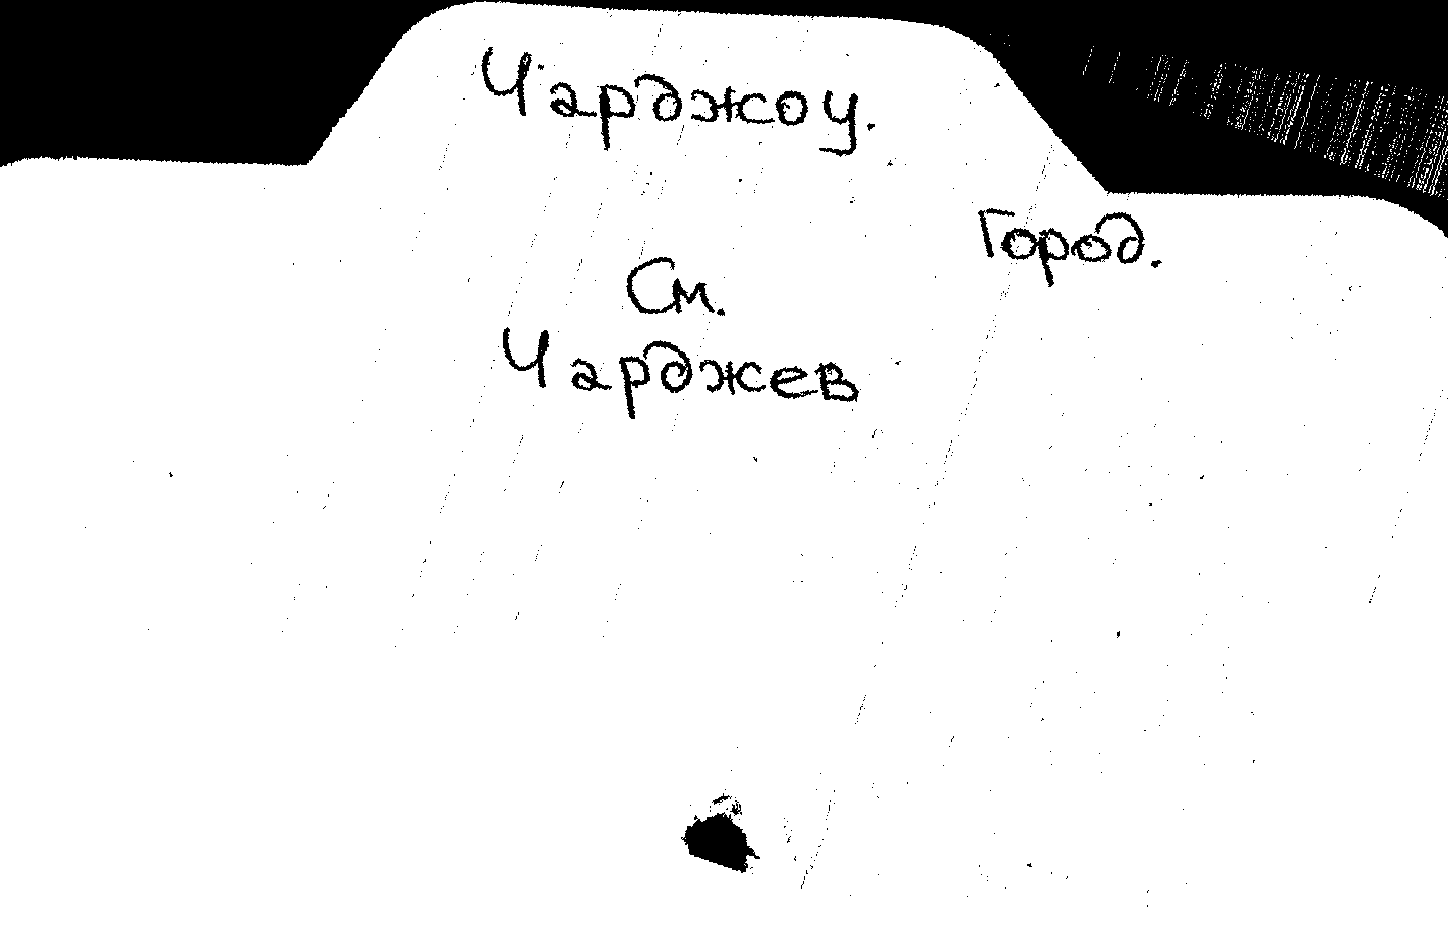 Чарджоу.
Город.
См.
Чарджев